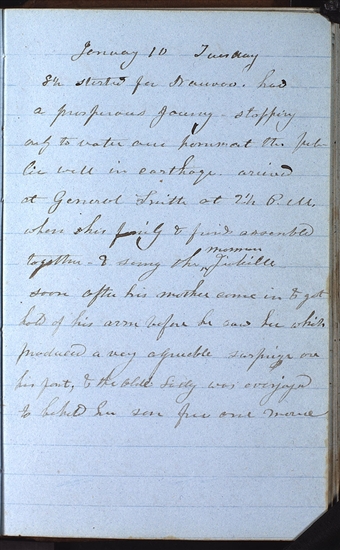 Jenuay 10 Tuesday
8h started for Nauvoo. had
a prosperous Jouny - stopping
only to water our horses at the pub-
lic well in carthage. arived
at General Smiths at 2½ P.M.
when his family & frinds assembled
together - & sung the mormon Jubilee
soon after his mother come in & got
hold of his arm before he saw her which
produced a very agreeable surprize on
his part, & the olde Lady was overjoyd
to behold her son free once more